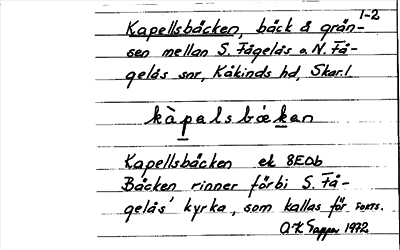 1-2
Kapellsbäcken, bäck å grän-
sen mellan S. Fågelås o. N. Få-
gelås snr, Kåkinds hd, Skar.l.
kàpalsbækan
Kapellsbäcken ek 8E0b
Bäcken rinner förbi S. Få-
gelås' kyrka, som kallas för FORTS.
1972